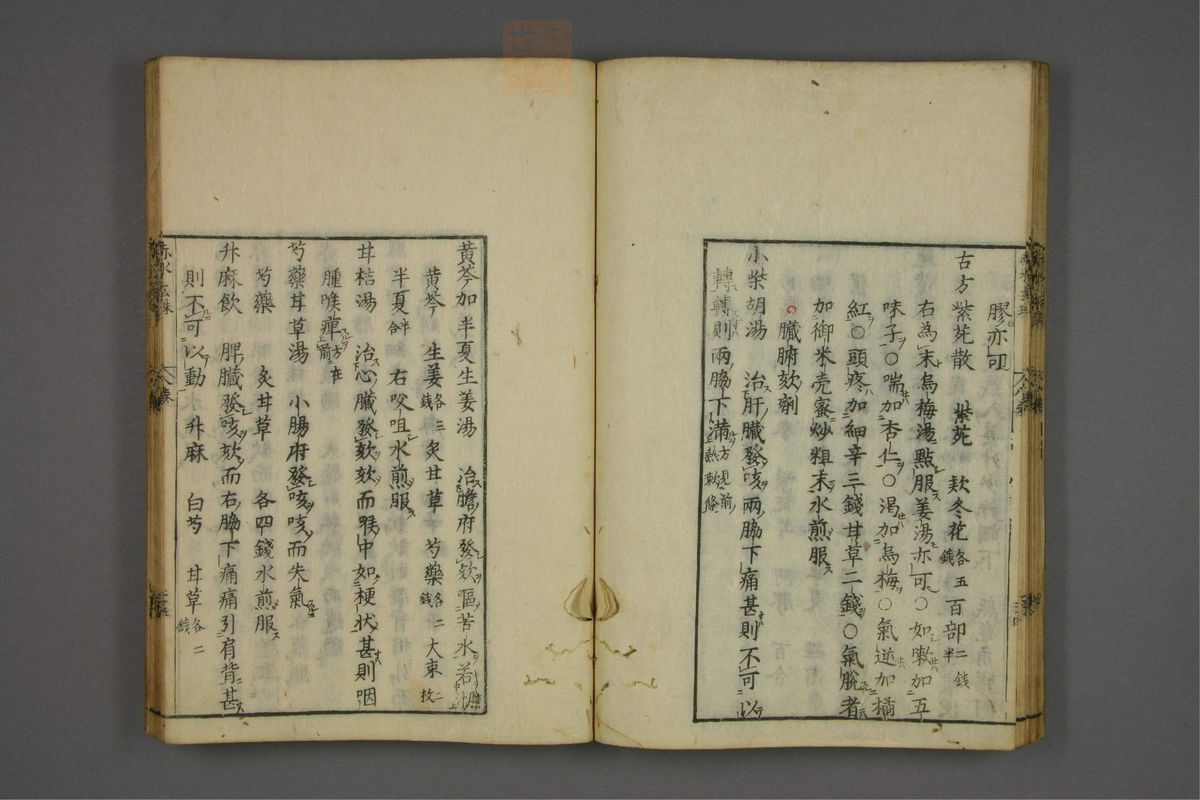 膠亦可
古方紫菀散 紫菀 欵冬花各五錢 百部二錢半
右為末烏梅湯點服姜湯亦可○如嗽加五
味子○喘加杏仁○渇加烏梅○氣逆加橘
紅○頭疼加細辛三錢甘草二錢○氣脫者
加御米壳蜜炒粗末水煎服
臟腑欬劑
小柴胡湯 治肝臟發咳兩脇下痛甚則不可以
轉轉則兩脇下滿方見前
黄芩加半夏生姜湯 治膽府發欬嘔苦水若膽
黄芩 生姜各三錢 炙甘草 芍藥各二錢 大棗二枚
半夏半合 右㕮咀水煎服
甘桔湯 治心臟發欬欬而喉中如梗状甚則咽
腫喉痺方在前
芍藥甘草湯 小腸府發咳咳而失氣
芍藥 炙甘草 各四錢水煎服
升麻飲 脾臟發咳欬而右脇下痛痛引肩背甚
則不可以動 升麻 白芍 甘草各二錢
赤水玄珠 八卷